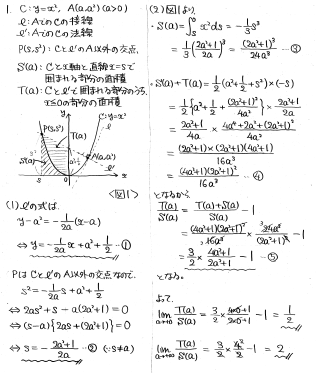 1. C: y=x², A(a,a²) (a>0)
l: AでのCの接線
l': AでのCの法線
P(s,s²): Cとl'のA以外の交点
S(a): Cとx軸と直線x=sで
囲まれる部分の面積
T(a): Cとl'で囲まれる部分のうち、
x≤0の部分の面積
y
C: y=x²
l
P(s,s²)
T(a)
S(a)
A(a,a²)
a²+1/2
l'
s
0
x
<図1>
(1) l'の式は
y-a² = -1/2a (x-a)
⇔ y = -1/2a x + a² + 1/2 … ①
PはCとl'のA以外の交点なので、
s² = -1/2a s + a² + 1/2
⇔ 2as² + s - a(2a²+1) = 0
⇔ (s-a){2as+(2a²+1)} = 0
⇔ s = -(2a²+1)/2a … ② (∵ s≠a)
(2) 図1より、
・S(a) = ∫_s^0 x² dx = -1/3 s³
= 1/3 ((2a²+1)/2a)³ = (2a²+1)³/24a³ … ③
・S(a)+T(a) = 1/2 (a²+1/2+s²)×(-s)
= 1/2 {a²+1/2+(2a²+1)²/4a²} × (2a²+1)/2a
= (2a²+1)/4a × (4a⁴+2a²+(2a²+1)²)/4a²
= (2a²+1)×(2a²+1)(4a²+1)/16a³
= (4a²+1)(2a²+1)²/16a³ … ④
となるから、
T(a)/S(a) = (T(a)+S(a))/S(a) - 1
= (4a²+1)(2a²+1)²/16a³ × 24a³/(2a²+1)³ - 1
= 3/2 × (4a²+1)/(2a²+1) - 1 … ⑤
となる。
よって、
lim_{a→+0} T(a)/S(a) = 3/2 × (4×0+1)/(2×0+1) - 1 = 1/2
lim_{a→+∞} T(a)/S(a) = 3/2 × 4/2 - 1 = 2